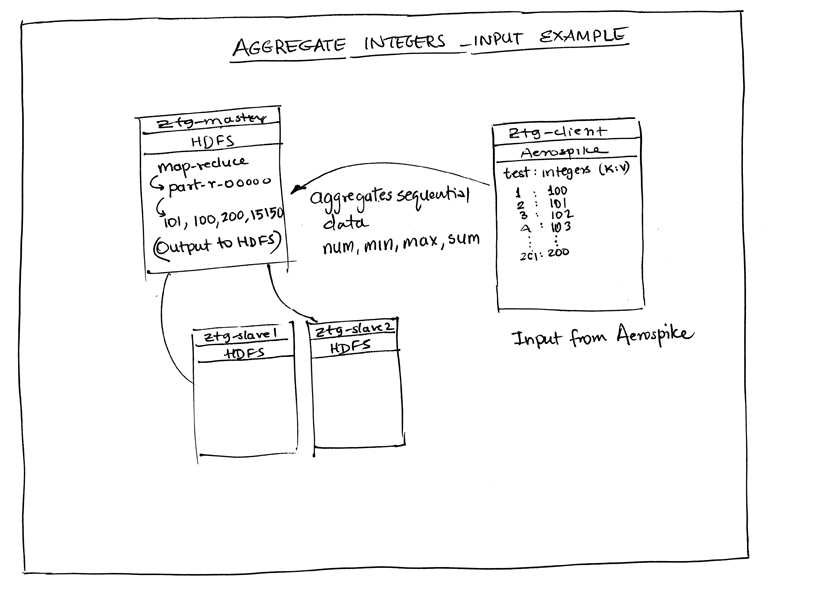 AGGREGATE INTEGERS - INPUT EXAMPLE
ztg-master
HDFS
map-reduce
part-r-00000
101, 100, 200, 15150
(Output to HDFS)
aggregates sequential
data
num, min, max, sum
ztg-client
Aerospike
test: integers (K:V)
1 : 100
2 : 101
3 : 102
4 : 103
: :
: 200
Input from Aerospike
ztg-slave1
HDFS
ztg-slave2
HDFS